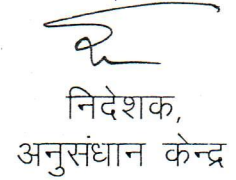 निदेशक,
अनुसंधान केन्द्र